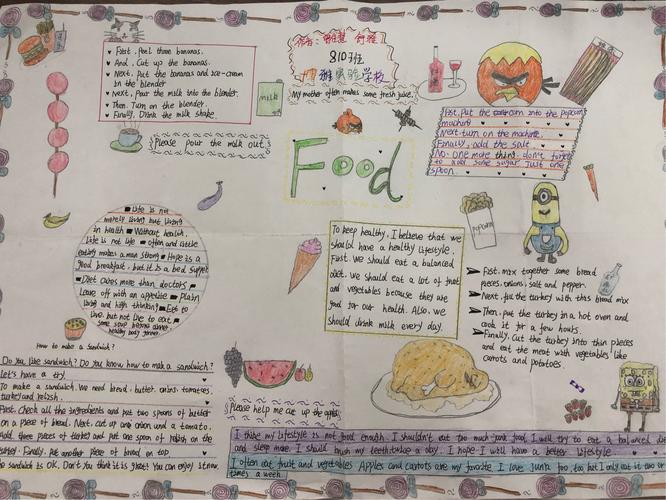 First, Peel three bananas.
And, Cut up the bananas.
Next, Put the bananas and ice-cream
in the blender
Next, Pour the milk into the blender.
Then, Turn on the blender.
Finally, Drink the milk shake.
Please pour the milk out.
作者:
810班
博雅实验学校
My mother often makes some fresh juice.
milk
Food
First, Put the corn into the popcorn
machine
Next, turn on the machine.
Finally, add the salt
No. one more thing. don't forget
to add some sugar Just one
spoon.
POPCORN
Life is not
merely living but living
in health Without health,
life is not life often and little
eating makes a man strong Hope is a
good breakfast, but it is a bad supper
Diet cures more than doctors
Leave off with an appetite Plain
living and high thinking Eat to
live, but not live to eat
some soup before dinner,
To keep healthy, I believe that we
should have a healthy lifestyle.
First we should eat a balanced
diet. we should eat a lot of fruit
and vegetables because they are
good for our health. Also, we
should drink milk every day.
First, mix together some bread
pieces, onions, salt and pepper.
Next, fill the turkey with this bread mix
Then, put the turkey in a hot oven and
cook it for a few hours.
Finally, Cut the turkey into thin pieces
and eat the meat with vegetables like
carrots and potatoes.
How to make a sandwich?
Do you like sandwich? Do you know how to make a sandwich?
Let's have a try.
To make a sandwich, we need bread, butter, onions, tomatoes,
turkey and relish.
First, Check all the ingredients and put two spoons of butter
on a piece of bread. Next, cut up one onion and a tomato.
Add three pieces of turkey and put one spoon of relish on the
turkey. Finally, Put another piece of bread on top
sandwich is OK. Don't you think it is great? You can enjoy it now.
Please help me cut up the apples
I think my lifestyle is not good enough. I shouldn't eat too much junk food, I will try to eat a balanced diet
and sleep more. I should brush my teeth twice a day. I hope I will have a better lifestyle.
I often eat fruit and vegetables Apples and carrots are my favorite. I love junk food too but I only eat it two or
times a week.